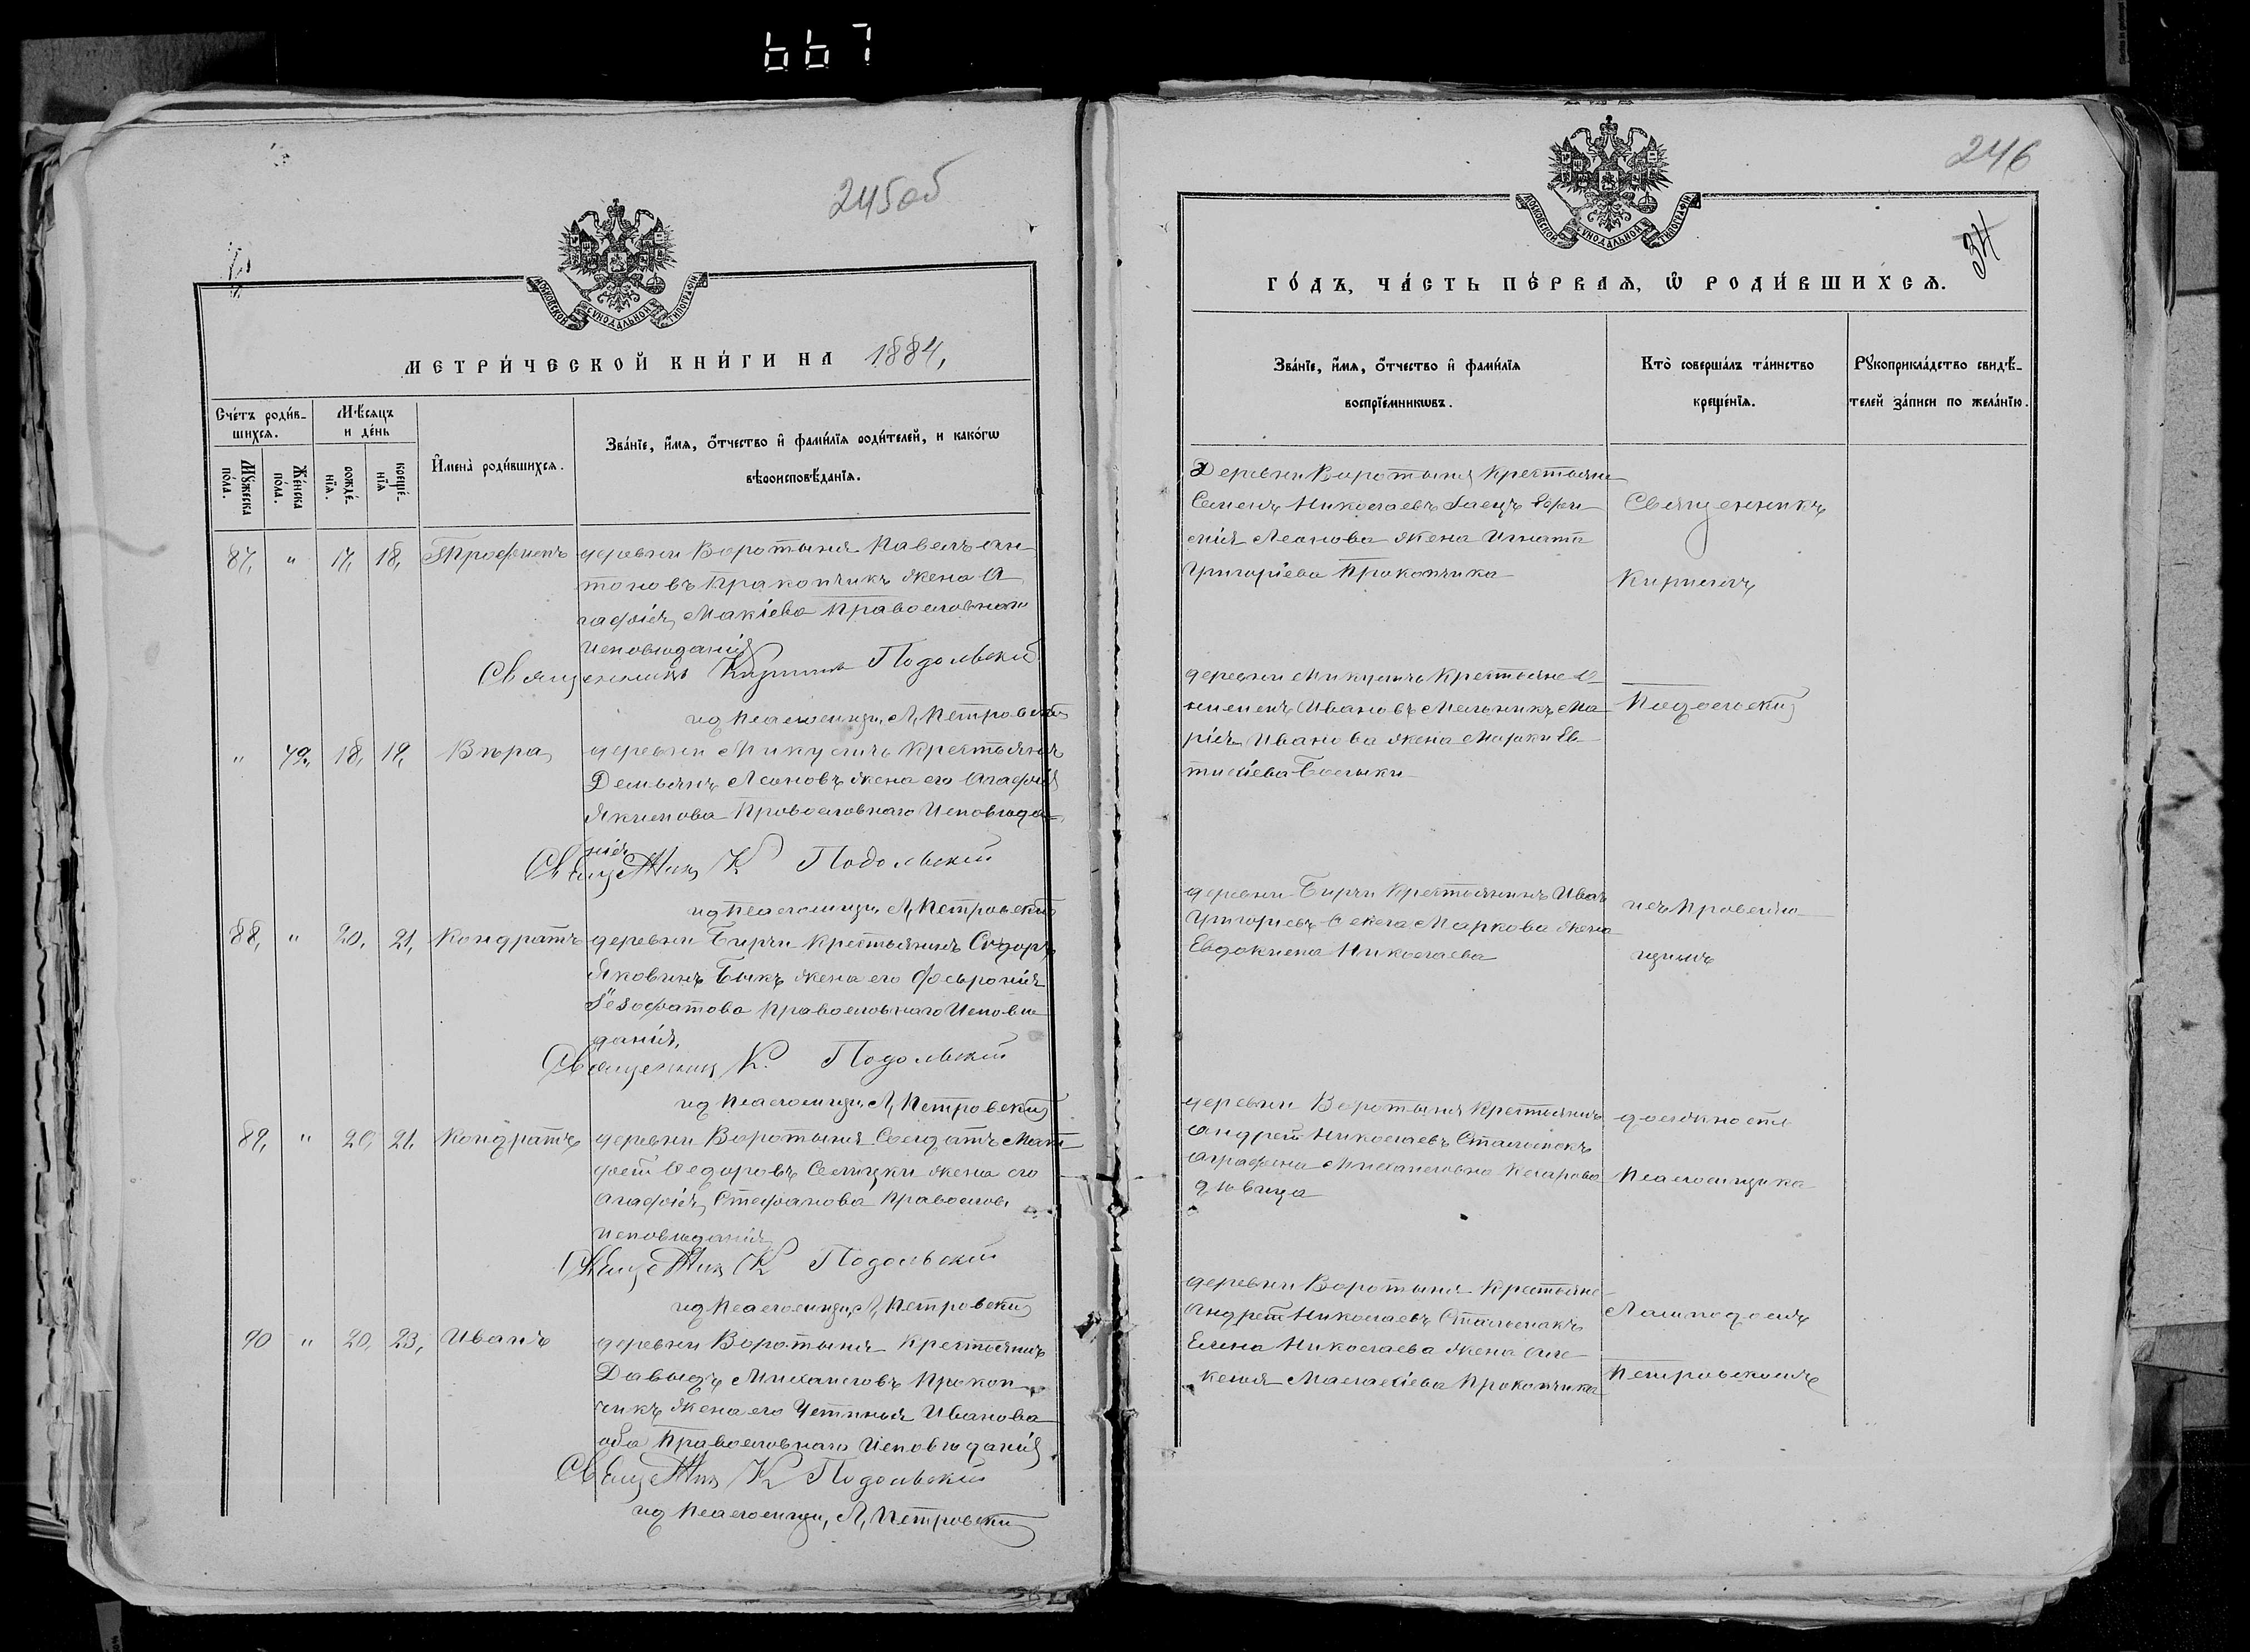 667
245об
МОСКОВСКОЙ СУНОДАЛЬНОЙ ТИПОГРАФІИ
МЕТРИ́ЧЕСКОЙ КНИ́ГИ НА 1884,
Сче́тъ роди́вшихсѧ.
Мѣ́сѧцъ и де́нь
Мꙋ́жеска по́ла.
Же́нска по́ла.
рожде́нїѧ.
креще́нїѧ
И҆мена̀ роди́вшихсѧ.
Зва́нїе, и҆́мѧ, ѻ҆́тчество и҆ фами́лїѧ роди́телей, и како́гѡ
вѣроисповѣ́данїѧ.
87, " 17, 18, Трофимъ деревни Воротыня Павелъ Ан-
тоновъ Пракопчикъ жена А
гафія Макіева Православнаго
Исповѣданія
Священникъ Кириллъ Подольскій
ид Псаломщи, Л, Петровскій
" 79, 18, 19, Вѣра деревни Микуличъ Крестьянинъ
Демьянъ Леоновъ жена его Агафія
Якимова Православнаго Исповѣда-
нія
Священникъ К Подольскій
ид Псаломщи, Л, Петровскій
88, " 20, 21, Кондратъ деревни Бирчи крестьянинъ Сидоръ
Яковинъ Быкъ жена его Февронія
Іезофатова Православнаго Исповѣ
данія,
Священник К. Подольскій
ид Псаломщи, Л, Петровскій
89, " 20, 21, Кондратъ деревни Воротыня Солдатъ Мат-
фей Федоровъ жена его
Агафія Стефанова Православ.
Исповѣданія
Священник К Подольскій
ид Псаломщи, Л, Петровскій
90 " 20, 23, Иванъ деревни Воротыня Крестьянинъ
Давыдъ Михаиловъ Прокоп-
чикъ жена его Устинья Иванова
оба Православнаго Исповѣданія
Священник К Подольскій
ид Псаломщи, Л, Петровскій
246
34
МОСКОВСКОЙ СУНОДАЛЬНОЙ ТИПОГРАФІИ
ГО́ДЪ, ЧА́СТЬ ПЕ́РВАѦ, Ѡ҆ РОДИ́ВШИХСѦ.
Зва́нїе, и҆́мѧ, ѻ҆́тчество и҆ фами́лїѧ
воспрїе́мникѡвъ.
Кто̀ соверша́лъ та́инство
креще́нїѧ.
Рꙋкоприкла́дство свидѣ́-
телей за́писи по жела́нїю.
Деревни Воротыня Крестьяне
Семенъ Николаевъ Заецъ Ефи-
мія Леонова жена Игната
Григоріева Прокопчика
Священникъ
Кириллъ
деревни Микуличъ Крестьяне
Ивановъ Мельникъ Ма-
рія Иванова жена Марки Ев-
тихіева
Подольскій
деревни Бирчи Крестьянинъ Иван
Григорьевъ Фекла Маркова жена
Евдокима Николаева
исъ Правляю-
щимъ
деревни Воротыня Крестьянинъ
Андрей Николаевъ Стальмакъ
Аграфена Михаиловна
дѣвица
должность
Псаломщика
деревни Воротыня Крестьяне
Андрей Николаевъ Стальмакъ
Елена Николаева жена Але-
ксѣя Малахіева Прокопчика
Петровскимъ